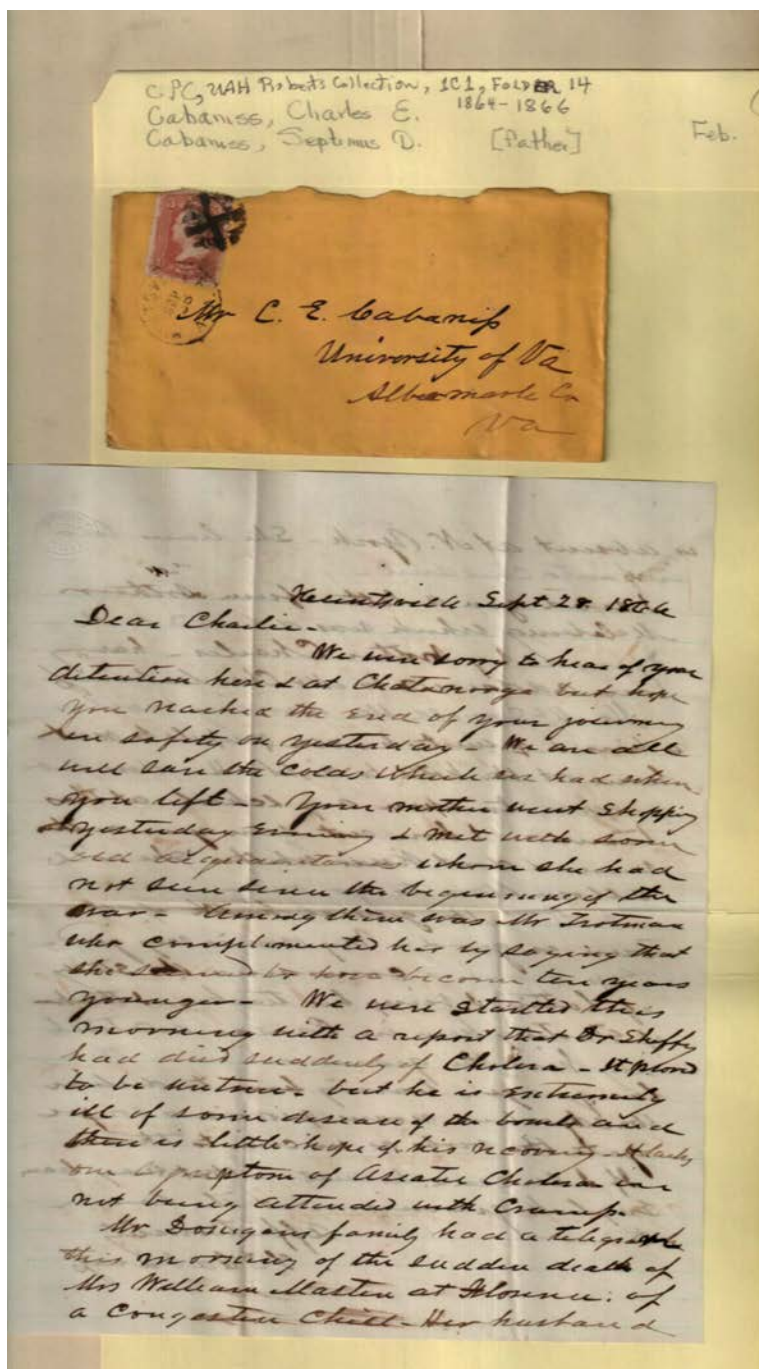 C.P.C, UAH Roberts Collection, 1C1, FOLDER 14
Cabaniss, Charles E. 1864-1866
Cabaniss, Septimus D. [father] Feb.
Mr C. E. Cabaniss
University of Va
Albemarle Co
Va
Huntsville Sept 28 1866
Dear Charlie-
We were sorry to hear of your
detention here & at Chatanooga but hope
you reached the end of your journey
in safety on yesterday - We are all
well save the colds which we had when
you left - Your mother went shopping
yesterday evening & met with some
old acquaintances whom she had
not seen since the beginning of the
war - Among them was Mr Trotman
who complimented her by saying that
she seemed to have become ten years
younger - We were startled this
morning with a report that Dr Sheffey
had died suddenly of Cholera - It proved
to be untrue - but he is extremely
ill of some disease of the bowels and
there is little hope of his recovery - It lacks
one symptom of Asiatic Cholera in
not being attended with Cramp.
Mr Donegans family had a telegraph
this morning of the sudden death of
Mrs William Mastin at Florence. of
a Congestive Chill - Her husband